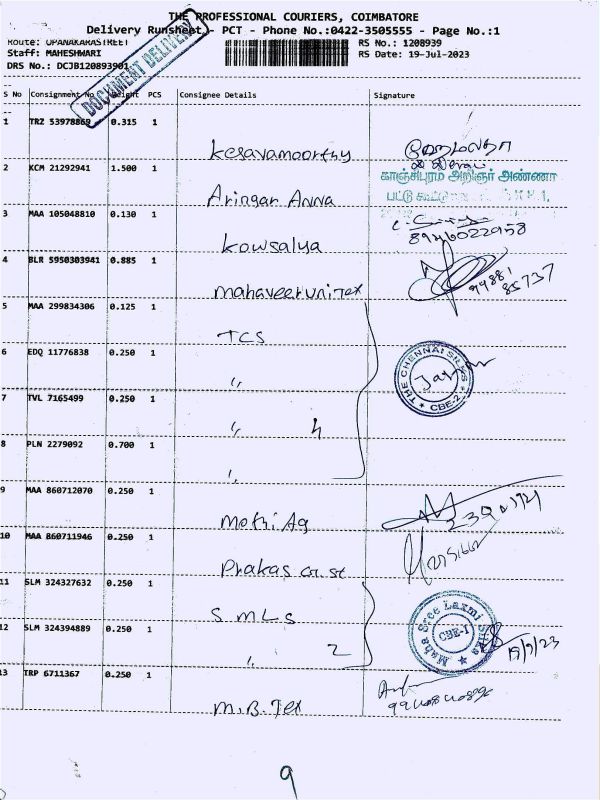 THE PROFESSIONAL COURIERS, COIMBATORE
Delivery Runsheet - PCT - Phone No.:0422-3505555 - Page No.:1
Route: OPANAKARASTREET
RS No.: 1208939
Staff: MAHESHWARI
RS Date: 19-Jul-2023
DRS No.: DCJB120893901
DOCUMENT DELIVERY
S No Consignment No Weight PCS Consignee Details Signature
1 TRZ 53978869 0.315 1
Kesavamoorthy
2 KCM 21292941 1.500 1
Aringar Anna
காஞ்சிபுரம் அறிஞர் அண்ணா
பட்டு
3 MAA 105048810 0.130 1
Kowsalya
8946022958
4 BLR 5950303941 0.885 1
mahaveerunitex
99881
85737
5 MAA 299834306 0.125 1
TCS
6 EDQ 11776838 0.250 1
"
THE CHENNAI SILKS
CBE-2
7 TVL 7165499 0.250 1
" 4
8 PLN 2279092 0.700 1
"
9 MAA 860712070 0.250 1
mothi Ag
10 MAA 860711946 0.250 1
Prakas
11 SLM 324327632 0.250 1
S.M.L.S
Maha Sree Laxmi Silks
CBE-1
12 SLM 324394889 0.250 1
" 2
19/7/23
13 TRP 6711367 0.250 1
M.B.Tex
9